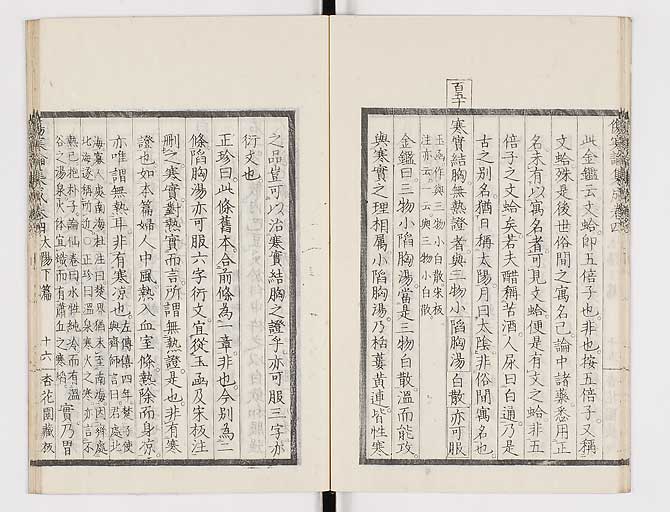 此金鑑云文蛤卽五倍子也非也按五倍子又稱
文蛤殊是後世俗間之寓名已論中諸藥悉用正
名未有以寓名者可見文蛤便是有文之蛤非五
倍子之文蛤矣若夫醋稱苦酒人尿曰白通乃是
古之別名猶日稱太陽月曰太陰非俗間寓名也
寒實結胸無熱證者與三物小陷胸湯白散亦可服
玉函作與三物小白散宋板
注亦云一云與三物小白散
金鑑曰三物小陷胸湯當是三物白散溫而能攻
與寒實之理相屬小陷胸湯乃栝蔞黃連皆性寒
之品豈可以治寒實結胸之證乎亦可服三字亦
衍文也
正珍曰此條舊本合前條為一章非也今別為二
條陷胸湯亦可服六字衍文宜從玉函及宋板注
刪之寒實對熱實而言所謂無熱證是也非有寒
證也如本篇婦人中風熱入血室條熱除而身涼
亦唯謂無熱耳非有寒涼也左傳僖四年楚子使
與齊師言曰君處北
海寡人處南海杜注曰楚界猶未至南海因齊處
北海遂稱所近正珍曰溫泉寒火之寒亦言不
熱已抱朴子論仙卷曰水性純冷而有溫
谷之湯泉火體宜熾而有蕭丘之寒焰
實乃胃
傷寒論集成卷四
太陽下篇
十六
杏花園藏板